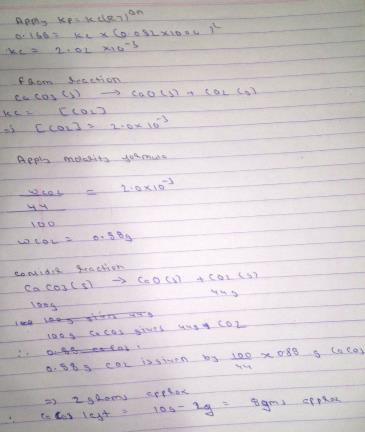 Apply Kp = Kc(RT)^Δn
0.166 = Kc × (0.082 × 1000)^1
Kc = 2.02 × 10^-3
From reaction
CaCO3(s) → CaO(s) + CO2(g)
Kc = [CO2]
⇒ [CO2] = 2.0×10^-3
Apply molarity formula
WCO2 / 44 / 100 = 2.0×10^-3
WCO2 = 0.88g
Consider reaction
CaCO3(s) → CaO(s) + CO2(g)
100g 44g
100g CaCO3 gives 44g CO2
0.88g CO2 is given by 100/44 × 0.88 g CaCO3
⇒ 2 grams approx
∴ CaCO3 left = 10g - 2g = 8gms approx